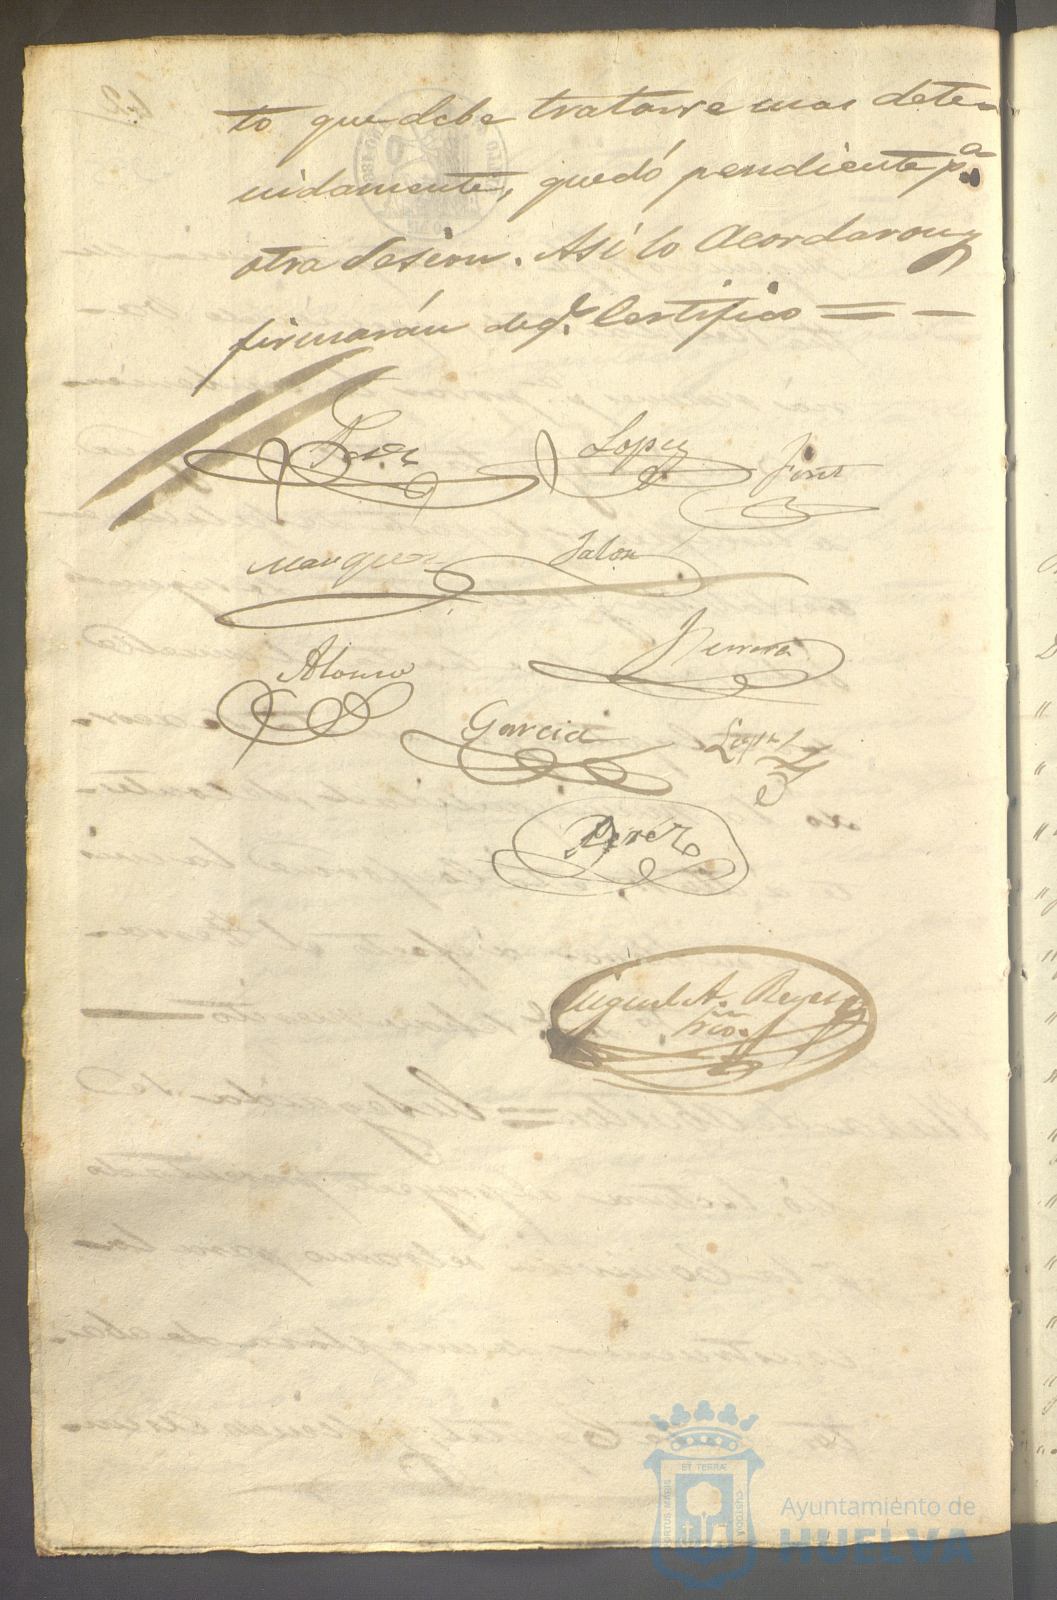 to que debe tratarse mas dete-
nidamente, quedó pendiente p.ª
otra Sesion. Así lo Acordaron y
firmarán de q.e Certifico = -
Lopez
Font
Marquez Jalon
Alonso
Herrera
Garcia Lopez
Perez
Miguel A. Reyes
Srio.
Ayuntamiento de
HUELVA